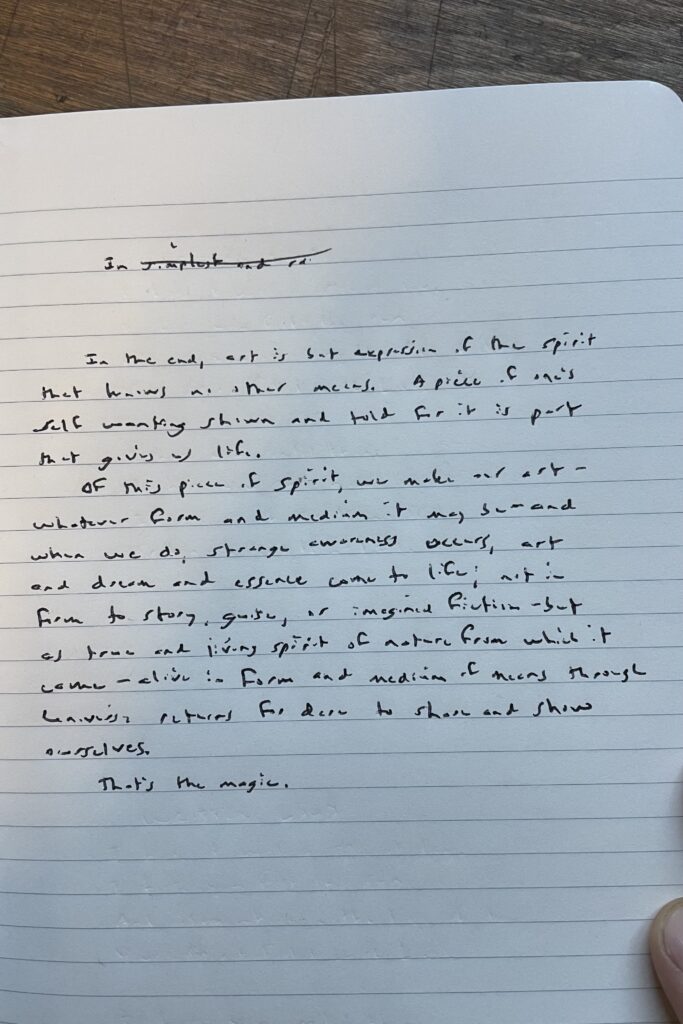 In simplest and
In the end, art is but expression of the spirit
that knows no other means. A piece of one's
self wanting shown and told for it is part
that gives us life.
Of this piece of spirit, we make our art -
whatever form and medium it may be - and
when we do, strange awareness occurs, art
and dream and essence come to life; not in
form to story, guise, or imagined fiction - but
as true and living spirit of nature from which it
came - alive in form and medium of means through
returns for to share and show
ourselves.
That's the magic.